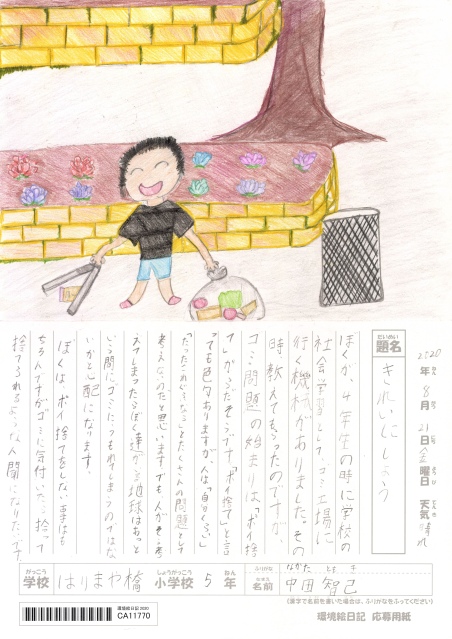 2020年8月21日金曜日 天気 晴れ
だいめい
題名
きれいにしよう
ぼくが、4年生の時に学校の
社会学習として、ゴミ工場に
行く機械がありました。その
時、教えてもらったのですが、
ゴミ問題の始まりは、「ポイ捨
て」からだそうです。「ポイ捨て」と言
っても色々ありますが、人は「自分くらい」
「だったこれぐらいなら」とたくさんの問題として
考えなかったのだと思います。でも人がそう考
えてしまったらぼく達がいる地球はあっと
いう間にゴミにうもれてしまうのではな
いかと心配になります。
ぼくは、ポイ捨てをしない事はも
ちろんですがゴミに気付いたら拾って
捨てられるような人間になりたいです。
がっこう
学校 はりまや橋
しょうがっこう
小学校 5
ねん
年
ふりがな なかた ともき
なまえ
名前 中田 智己
(漢字で名前を書いた場合は、ふりがなをふってください)
環境絵日記2020
CA11770
環境絵日記 応募用紙